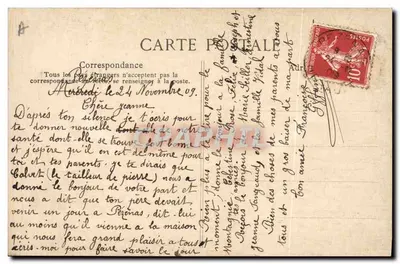 CARTE POSTALE
Correspondance
Tous les pays étrangers n'acceptent pas la
correspondance se renseigner à la poste.
Mercredi le 24 Novembre 09.
Chère Jeanne
D'après ton silence je t'écris pour
te donner nouvelle de
santé dont elle se trouve
et j'espère qu'il en est de même pour
toi et tes parents. je te dirais que
Calvet (le tailleur de pierre) nous a
donné le bonjour de votre part et
nous a dit que ton père devait
venir un jour à Pézenas, dit-lui
au moins qu'il vienne à la maison
qui nous fera grand plaisir à tous
écris-moi pour faire savoir le jour
Rien plus à te dire pour le
moment, donne le bonjour à la famille
Montagne
Reçois le bonjour de Marie
Jeanne famille Vidal
Bien des choses de mes parents à vous
tous et un gros baiser de ma part
ton amie Françoise
10